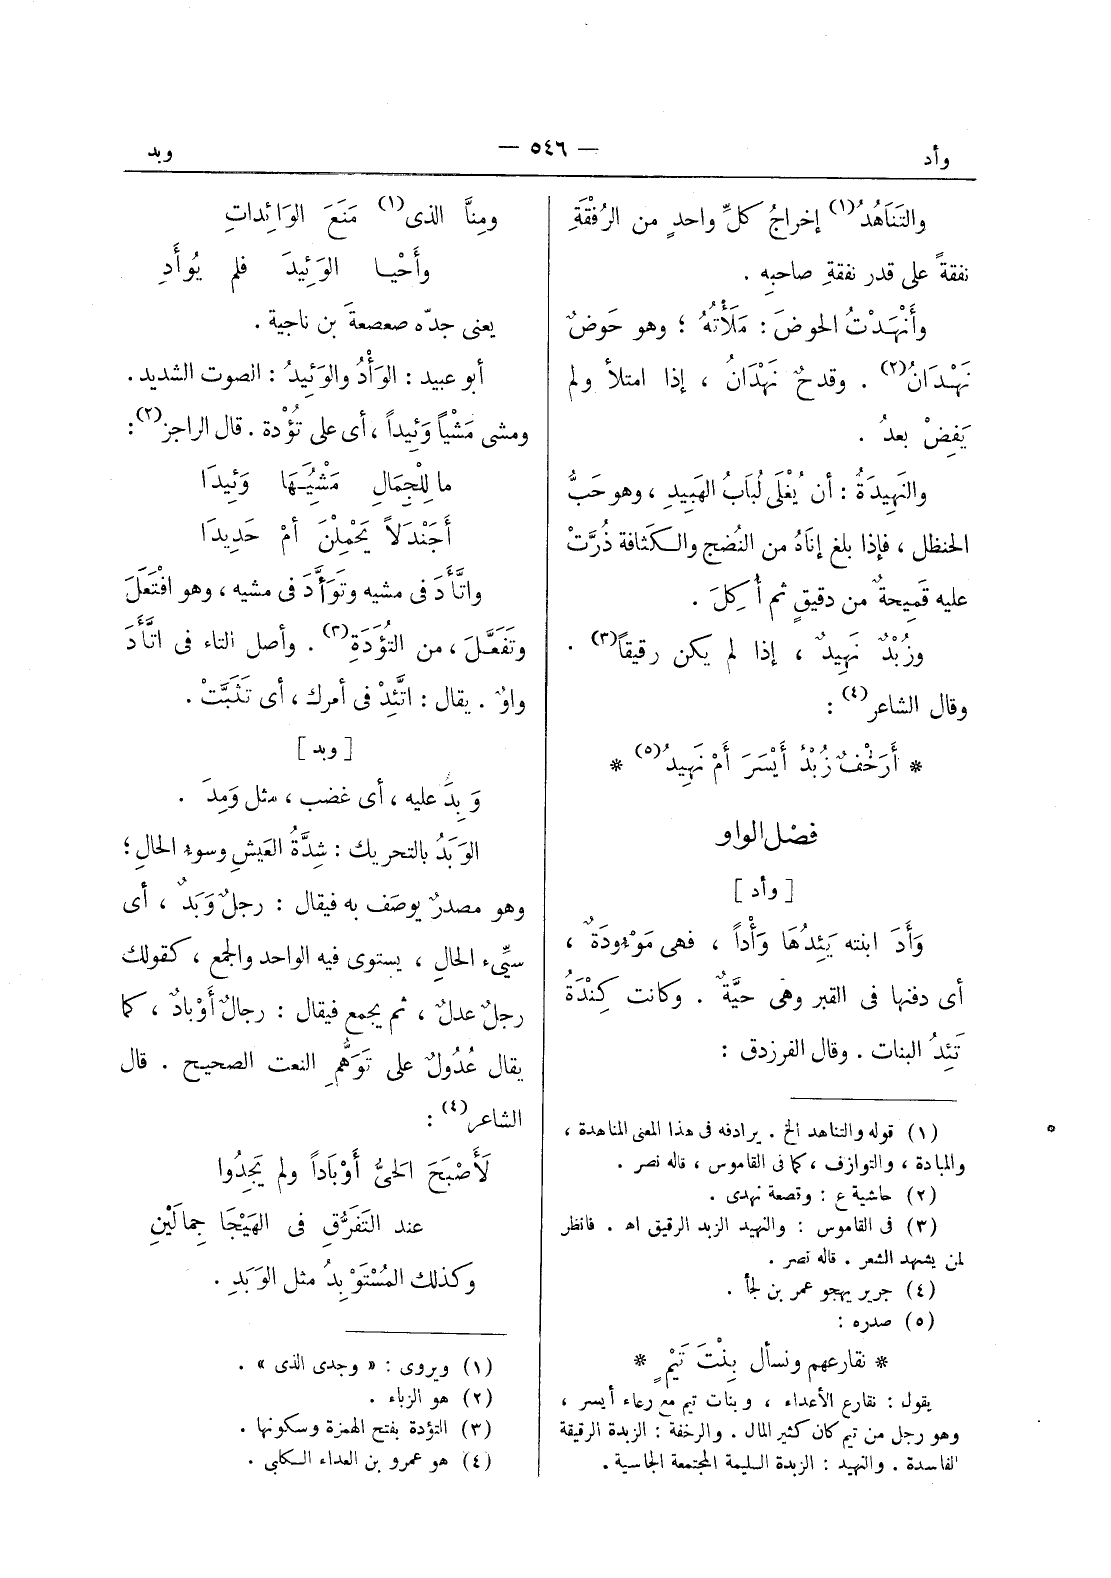 وأد — ٥٤٦ — وبد
والتَنَاهُدُ(١) إخراجُ كلِّ واحدٍ من الرُفْقَةِ
نفقةً على قدر نفقةِ صاحبِه .
وأَنْهَدْتُ الحوضَ : مَلَأْتُهُ ؛ وهو حَوضٌ
نَهْدَانُ(٢) . وقدحٌ نَهْدَانُ ، إذا امتلأ ولم
يَفِضْ بعدُ .
والنَهِيدَةُ : أن يُغْلَى لُبَابُ الهَبِيدِ ، وهو حَبُّ
الحنظل ، فإذا بلغ إنَاهُ من النُضج والكَثافة ذُرَّتْ
عليه قَمِيحةٌ من دقيقٍ ثم أُكِلَ .
وزُبْدٌ نَهِيدٌ ، إذا لم يكن رقيقاً(٣) .
وقال الشاعر(٤) :
* أَرَخْفٌ زُبْدُ أَيْسَرَ أَمْ نَهِيدُ(٥) *
فصْل الواو
[ وأد ]
وَأَدَ ابنته يَئِدُهَا وَأْداً ، فهى مَوْءودَةٌ ،
أى دفنها فى القبر وهى حيَّةٌ . وكانت كِنْدَةُ
تَئِدُ البنات . وقال الفرزدق :
(١) قوله والتناهد الخ . يرادفه فى هذا المعنى المناهدة ،
والمبادة ، والتوازف ، كما فى القاموس ، قاله نصر .
(٢) حاشية ع : وقصعة نهدى .
(٣) فى القاموس : والنهيد الزبد الرقيق اه . فانظر
لمن يشهد الشعر . قاله نصر .
(٤) جرير يهجو عمر بن لجأ .
(٥) صدره :
* نقارعهم ونسأل بِنْتَ تَيْمٍ *
يقول : نقارع الأعداء ، وبنات تيم مع رعاء أيسر ،
وهو رجل من تيم كان كثير المال . والرخفة : الزبدة الرقيقة
الفاسدة . والنهيد : الزبدة السليمة المجتمعة الجاسية .
ومِنَّا الذى(١) مَنَعَ الوَائِدَاتِ
وأَحْيا الوَئِيدَ فلم يُوأَدِ
يعنى جدّه صعصعةَ بن ناجية .
أبو عبيد : الوَأْدُ والوَئِيدُ : الصوت الشديد .
ومشى مَشْياً وَئِيداً ، أى على تُؤْدة . قال الراجز(٢) :
ما لِلْجِمَالِ مَشْيُهَا وَئِيدَا
أَجَنْدَلاً يَحْمِلْنَ أمْ حَدِيدَا
واتَّأَدَ فى مشيه وتَوَأَّدَ فى مشيه ، وهو افْتَعَلَ
وتَفَعَّلَ ، من التُؤَدَةِ(٣) . وأصل التاء فى اتَّأَدَ
واوٌ . يقال : اتَّئِدْ فى أمرك ، أى تَثَبَّتْ .
[ وبد ]
وَبِدَ عليه ، أى غضب ، مثل وَمِدَ .
الوَبَدُ بالتحريك : شِدَّةُ العَيشِ وسوء الحالِ ؛
وهو مصدرٌ يوصَف به فيقال : رجلٌ وَبَدٌ ، أى
سيِّىء الحالِ ، يستوى فيه الواحد والجمع ، كقولك
رجلٌ عدلٌ ، ثم يجمع فيقال : رجالٌ أَوْبادٌ ، كما
يقال عُدُولٌ على تَوَهُّمِ النعت الصحيح . قال
الشاعر(٤) :
لَأَصْبَحَ الحَىُّ أَوْبَاداً ولم يَجِدُوا
عند التَفَرُّقِ فى الهَيْجَا جِمالَيْنِ
وكذلك المُسْتَوْبِدُ مثل الوَبَدِ .
(١) ويروى : « وجدى الذى » .
(٢) هو الزباء .
(٣) التؤدة بفتح الهمزة وسكونها .
(٤) هو عمرو بن العداء الكلبى .